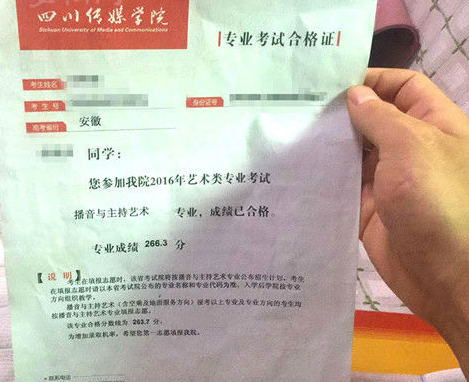 四川传媒学院
Sichuan University of Media and Communications
专业考试合格证
考生姓名
考生号
身份证号
高考省份 安徽
同学：
您参加我院2016年艺术类专业考试
播音与主持艺术 专业，成绩已合格。
专业成绩 266.3 分
【说明】
考生在填报志愿时，该省考试院将按播音与主持艺术专业公布招生计划，考生
在填报志愿时请以本省考试院公布的专业名称和专业代码为准，入学后学院按专业
方向组织教学。
播音与主持艺术（含空乘及地面服务方向）报考以上专业及专业方向的考生均
按播音与主持艺术专业填报志愿。
该专业合格分数线为 263.7 分。
为增加录取机率，希望您第一志愿填报我院。
联系电话